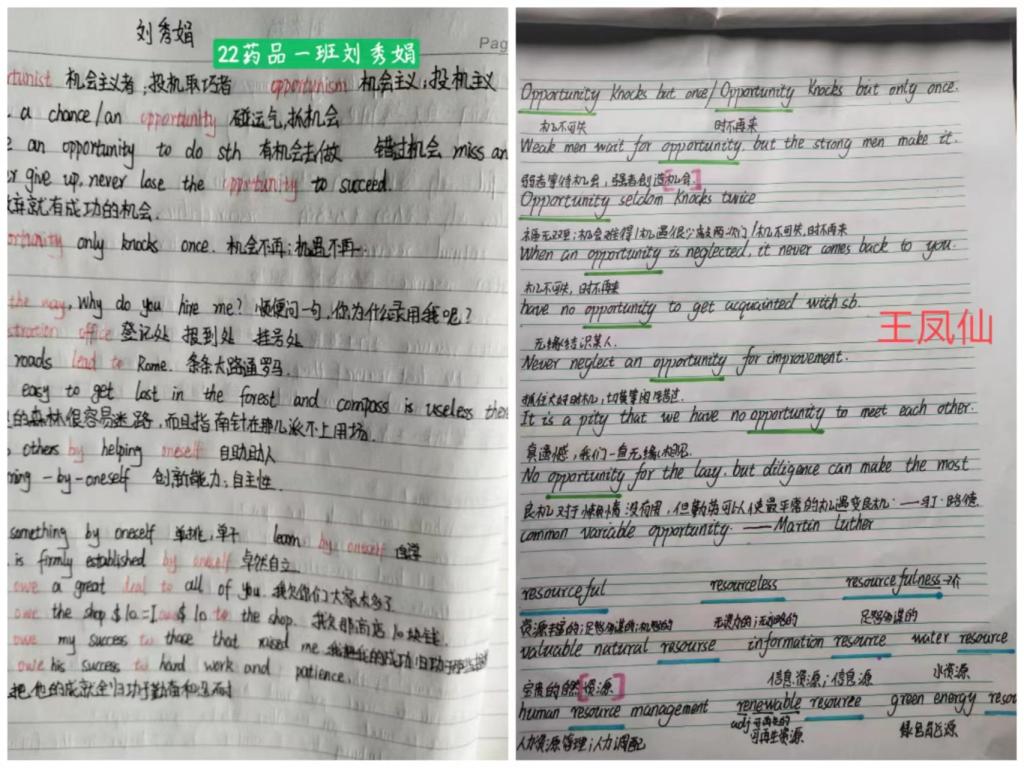 刘秀娟
22药品一班刘秀娟
Pag
rtunist 机会主义者;投机取巧者 opportunism 机会主义;投机主义
a chance/an opportunity 碰运气,抓机会
an opportunity to do sth 有机会去做 错过机会 miss an
er give up, never lose the opportunity to succeed.
就有成功的机会.
ortunity only knocks once. 机会不再;机遇不再
the way, Why do you hire me? 顺便问一句,你为什么录用我呢?
stration office 登记处 报到处 挂号处
roads lead to Rome. 条条大路通罗马.
easy to get lost in the forest and compass is useless the
的森林很容易迷路,而且指南针在那儿派不上用场.
others by helping oneself 自助助人
ning-by-oneself 创新能力;自主性.
something by oneself 单挑,单干 learn by oneself 自学
is firmly established by oneself 卓然自立.
owe a great deal to all of you. 我欠你们大家太多了
owe the shop $10.=I owe $10 to the shop. 我欠那商店10块钱.
owe my success to those that raised me 我把我的成功归功于
owe his success to hard work and patience.
把他的成就全归功于勤奋和忍耐
Opportunity Knocks but once/Opportunity Knocks but only once.
机不可失 时不再来
Weak men wait for opportunity, but the strong men make it.
弱者等待机会,强者创造[机会]
Opportunity seldom Knocks twice
福无双至;机会难得/机遇很少敲两次门/机不可失,时不再来
When an opportunity is neglected, it never comes back to you.
机不可失,时不再来
have no opportunity to get acquainted with sb.
无缘结识某人.
王凤仙
Never neglect an opportunity for improvement.
抓住大好时机,切莫等闲错过.
It is a pity that we have no opportunity to meet each other.
真遗憾,我们一直无缘相见.
No opportunity for the lazy, but diligance can make the most
良机对于懒惰没有用,但勤劳可以使最平常的机遇变良机.——马丁·路德
common variable opportunity. ——Martin Luther
resourceful resourceless resourcefulness→个
资源丰富的;足智多谋的;机智的 无资力的;无策略的 足智多谋的
valuable natural resourse information resource water resource
宝贵的自然[资源] 信息资源;信息源 水资源
human resource management renewable resource green energy resou
adj可再生的
人力资源管理;人力调配 可再生资源 绿色能源